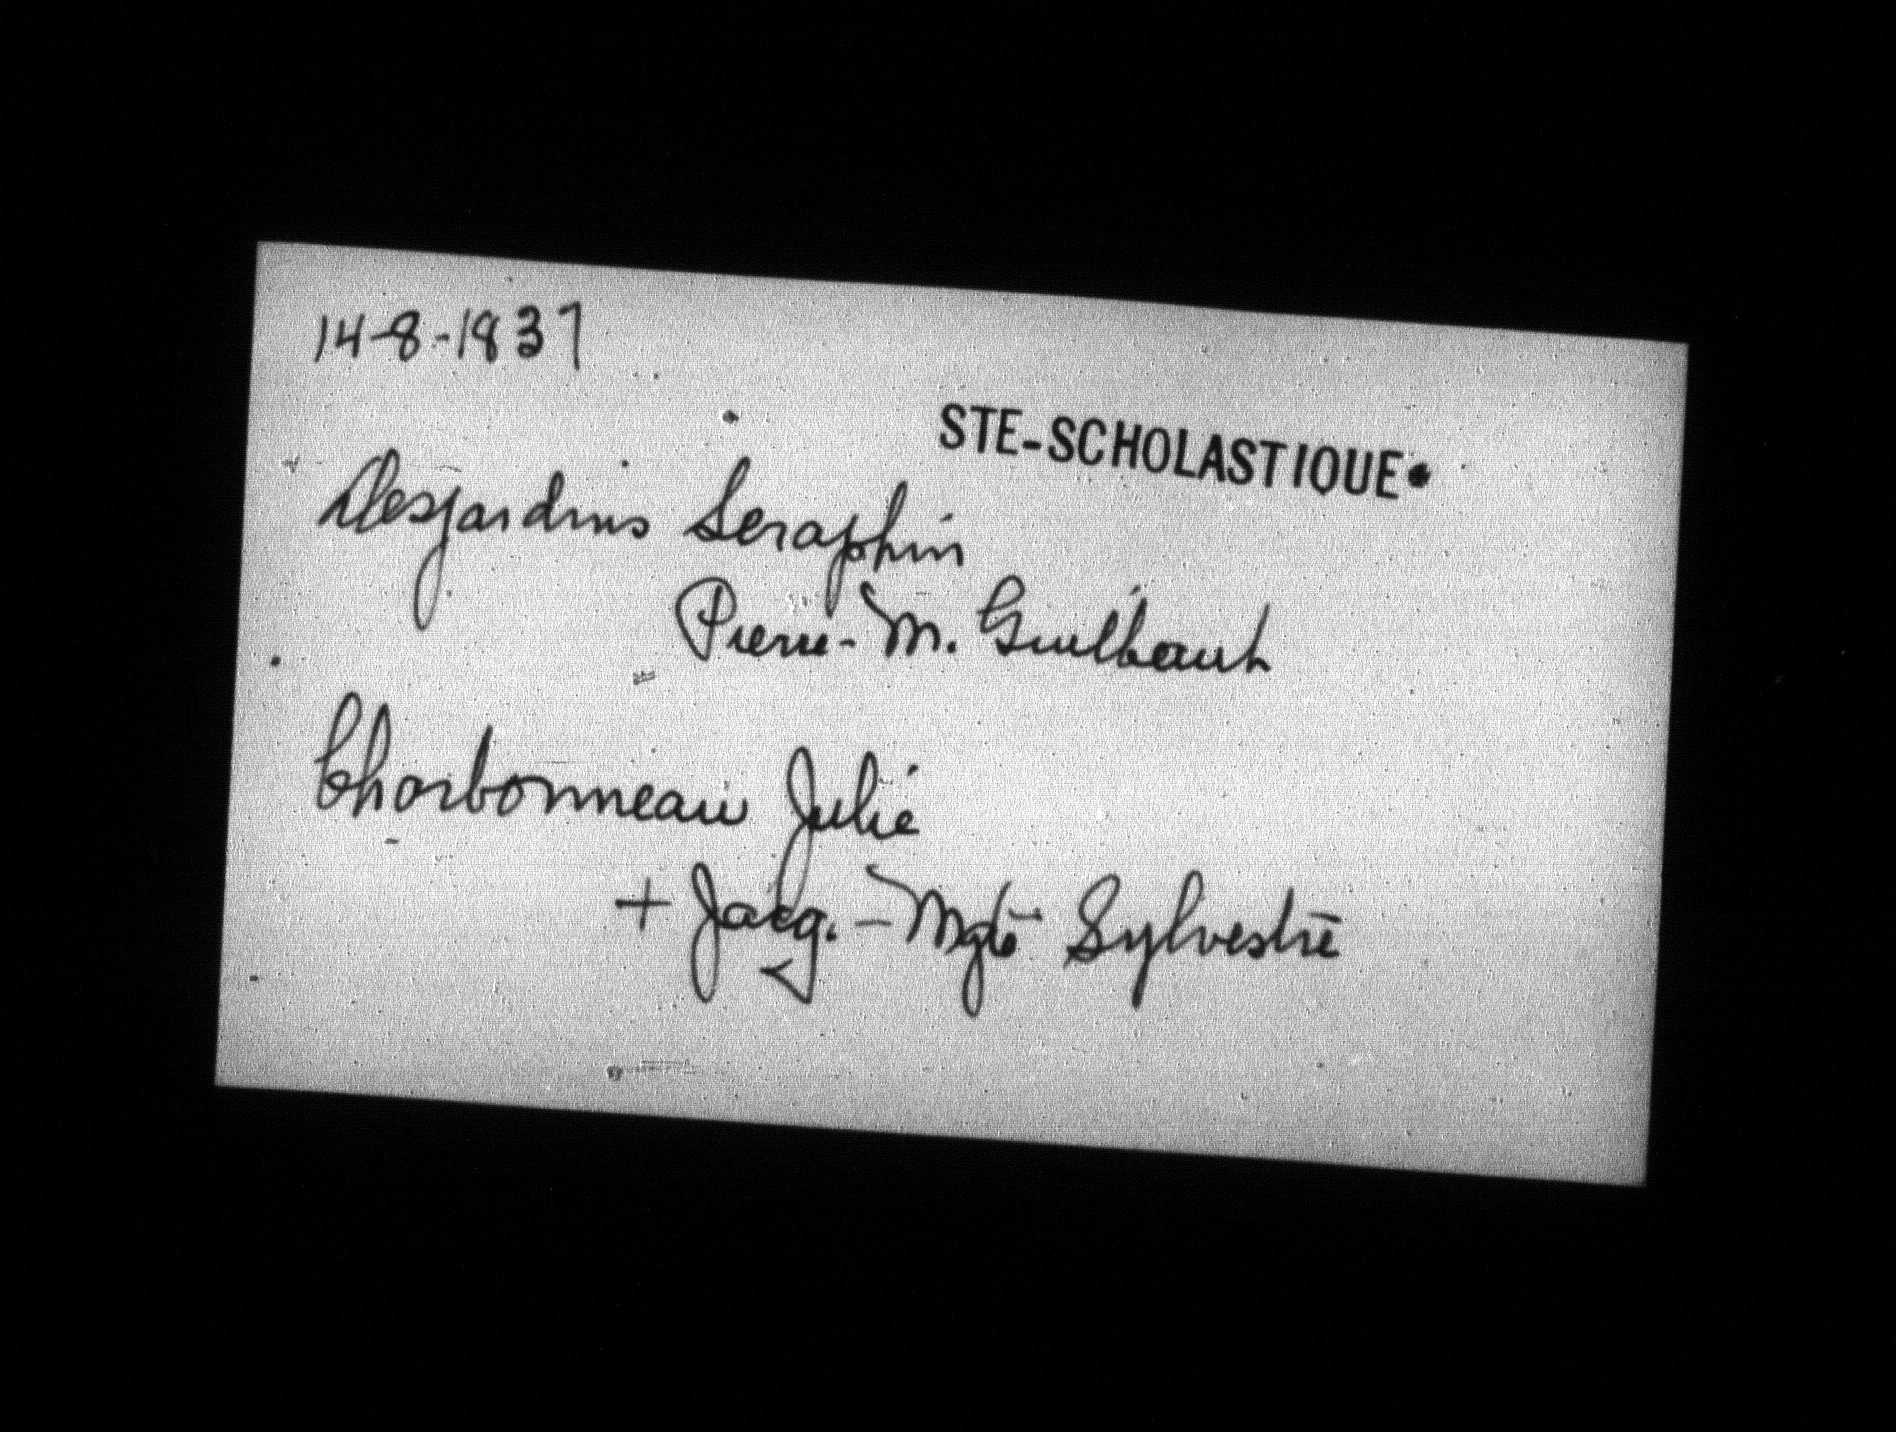 14-8-1837
STE-SCHOLASTIQUE
Desjardins Seraphin
Pierre - M. Guilbault
Charbonneau Julie
+ Jacq. - Mgte Sylvestre